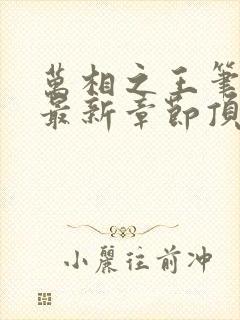 萬相之王筆
最新章節頂
小麗往前冲